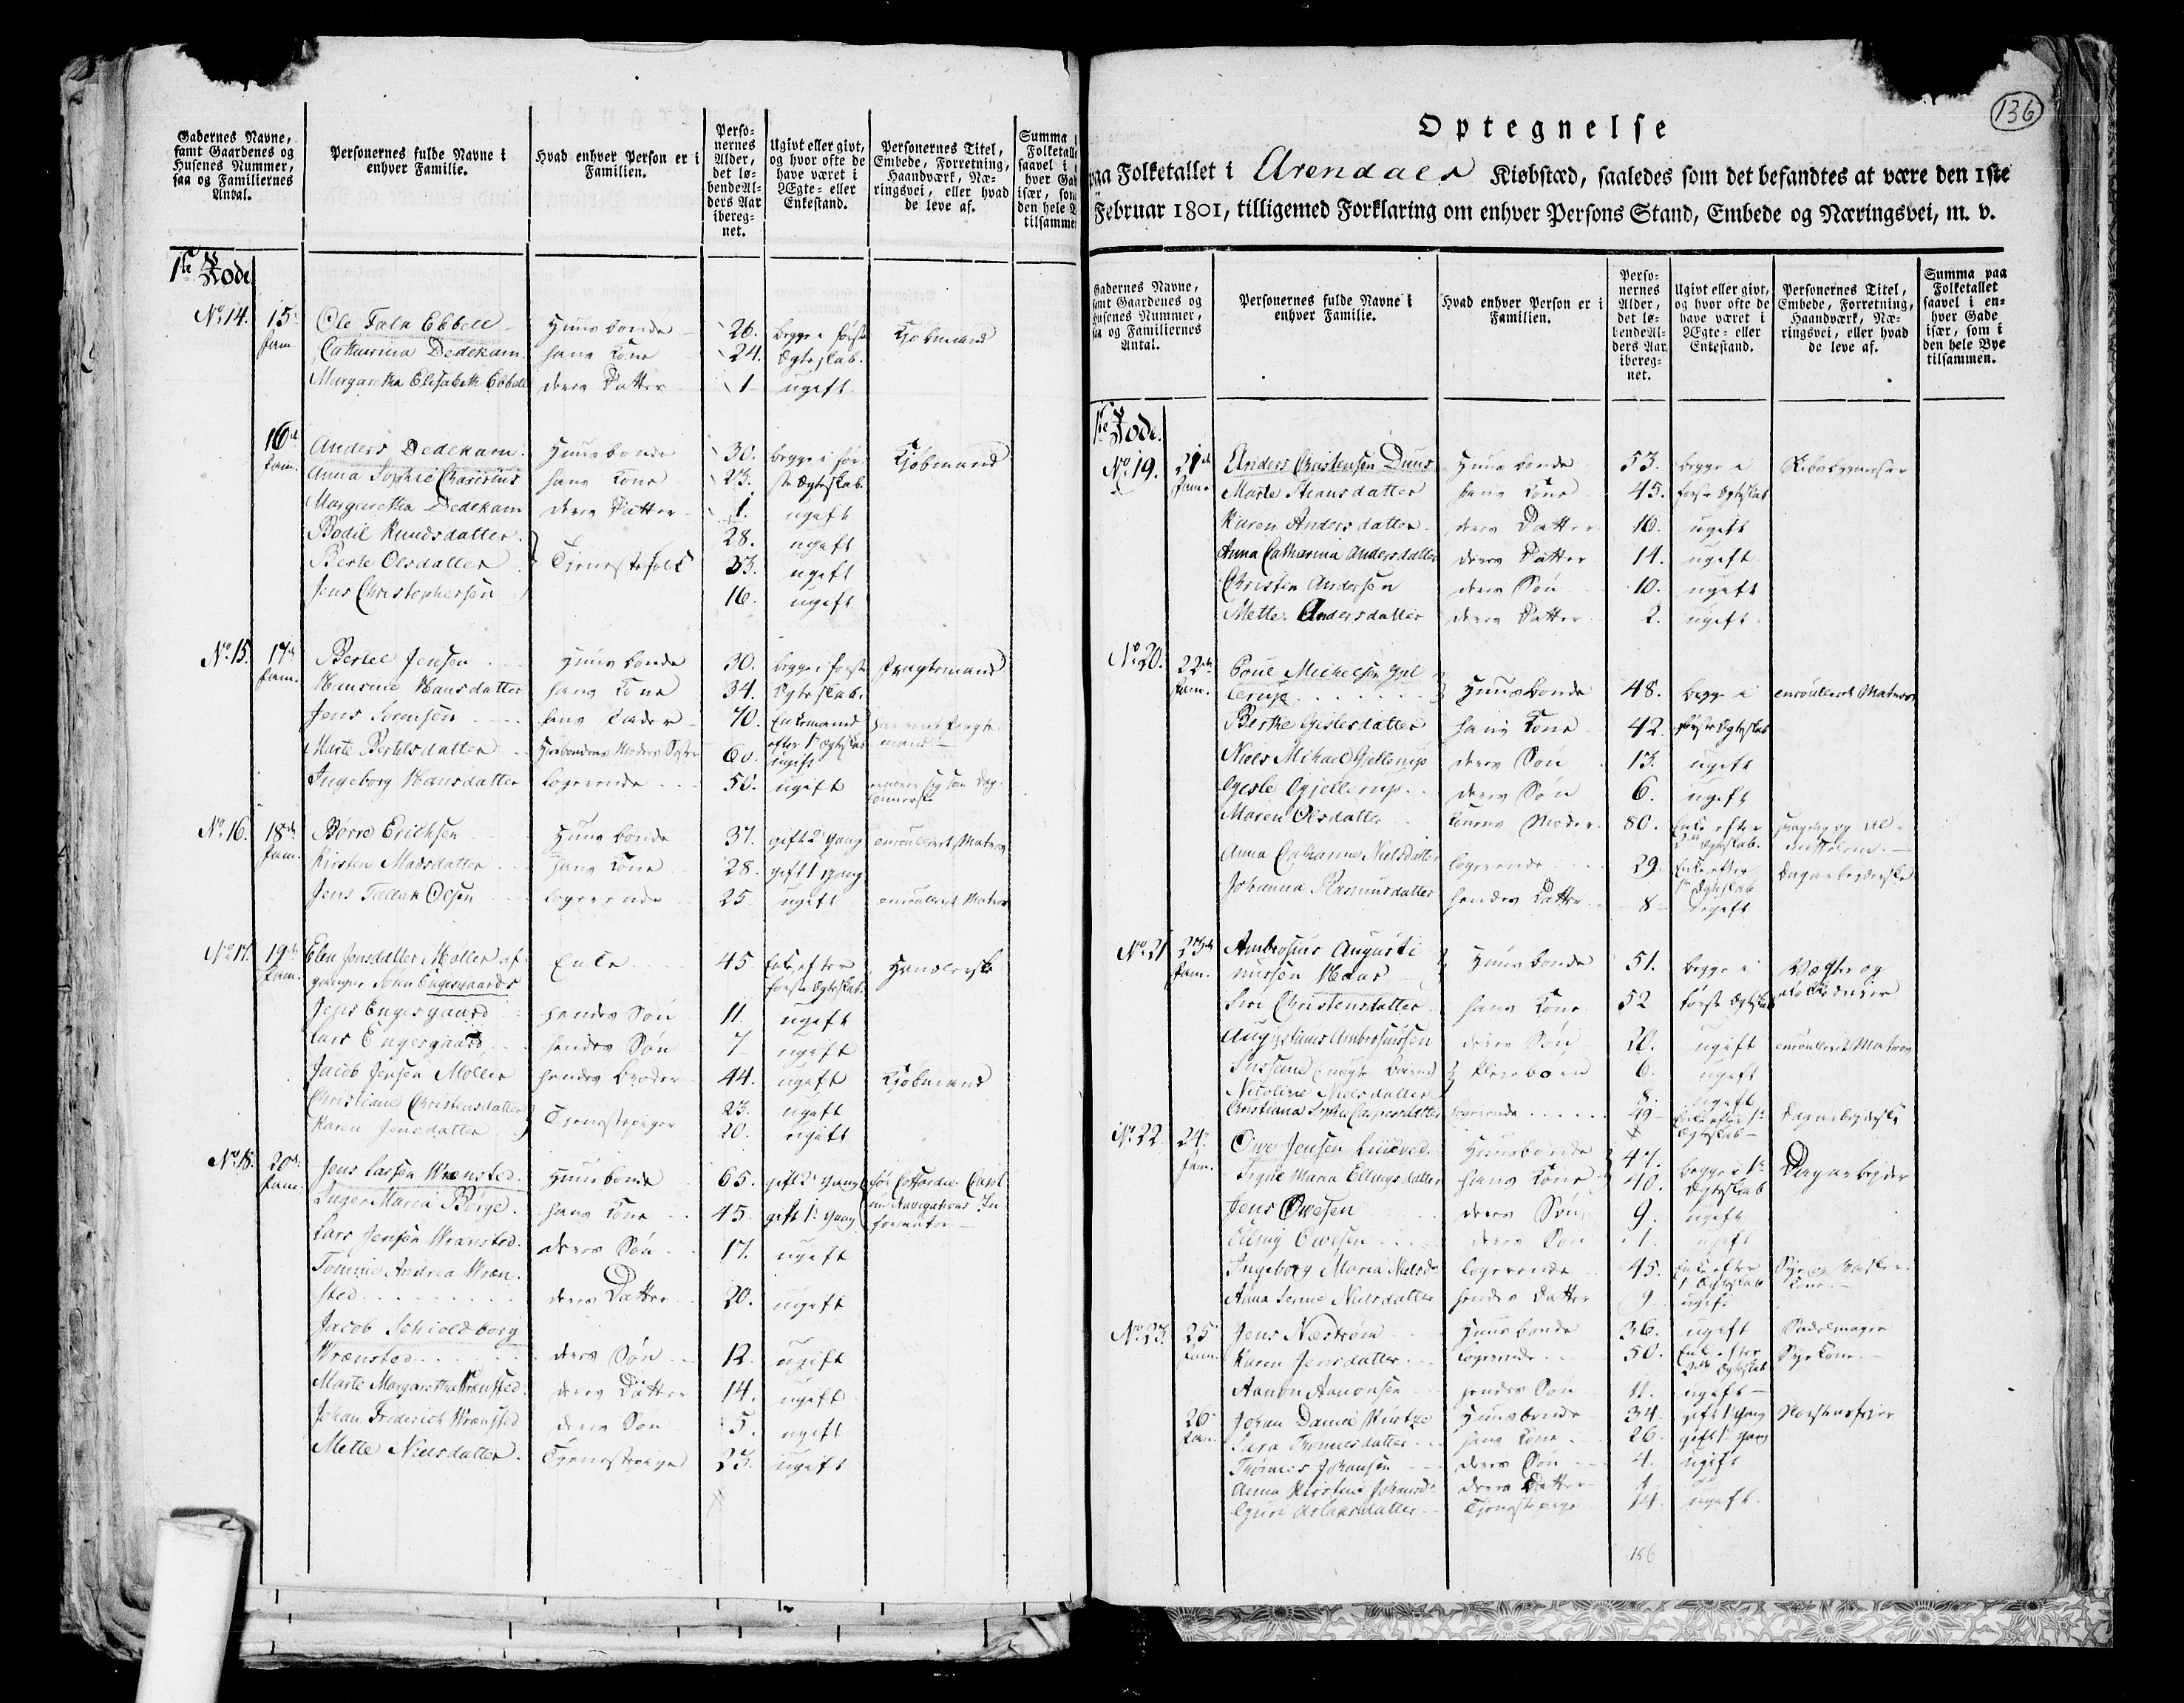 Gadernes Navne, samt Gaardenes og Husenes Nummer, saa og Familiernes Antal.
Personernes fulde Navne i enhver Familie.
Hvad enhver Person er i Familien.
Personernes Alder, det løbende Alders Aar iberegnet.
Ugivt eller givt, og hvor ofte de have været i Ægte- eller Enkestand.
Personernes Titel, Embede, Forretning, Haandværk, Næringsvei, eller hvad de leve af.
Summa Folketall saavel i hver Gad især, som den hele B tilsamme
1ste Rode
No. 14. 15 fam Ole Falk Ebbell Huusbonde 26. begge i første Kjøbmand
Catharina Dedekam hans Kone 24. Ægteskab.
Margaretha Elisabeth Ebbell deres Datter 1 ugift
16de fam. Anders Dedekam Huusbonde 30. begge i før- Kjøbmand
Anna Sophie Charisius hans Kone 23. ste Ægteskab.
Margaretha Dedekam deres Datter 1. ugift
Bodil Knudsdatter 28. ugift
Berte Olsdatter Tjenestefolk 33. ugift
Jens Christophersen 16. ugift
No. 15. 17de fam. Bertel Jensen Huusbonde 30. begge i første Fragtemand
Hansdatter hans Kone 34. Ægteskab.
Jens Sørensen hans Fader 70. Enkemand
Marte Bertelsdatter Huusbondens Moders Syster 60. efter 1ste Ægteskab ugift
Ingeborg Hansdatter logerende 50. ugift
No. 16. 18de fam. Børre Erichsen Huusbonde 37. gift 2 gang enroulleret Matros
Kirsten Madsdatter hans Kone 28. gift 1 gang
Jens Tallak Olsen logerende 25 ugift enroulleret Matros
No. 17. 19de fam. Elen Jensdatter Møller af- Enke 45 Enke efter Handlerske
gangne Søhn Engesgaards første Ægteskab.
Jens Engesgaard hendes Søn 11. ugift
Lars Engesgaard hendes Søn 7 ugift
Jacob Jensen Møller hendes Broder 44. ugift Kjøbmand
Christiane Christensdatter Tjenestepiger 23. ugift
Karen Jensdatter 20. ugift
No. 18. 20de fam. Jens Larsen Wrænsted Huusbonde 65. gift 2 gang
Inger Maria Børge hans Kone 45. gift 1 gang
Lars Jensen Wrænsted deres Søn 17. ugift
Tomine Andrea Wræn-
sted deres Datter 20. ugift
Jacob Schioldborg
Wrænsted deres Søn 12. ugift
Marte Margaretha Wrænsted deres Datter 14. ugift
Johan Friderich Wrænsted deres Søn 5. ugift
Mette Nielsdatter Tjenestepige 23. ugift
136
Optegnelse
paa Folketallet i Arendals Kiøbstæd, saaledes som det befandtes at være den 1ste
Februar 1801, tilligemed Forklaring om enhver Persons Stand, Embede og Næringsvei, m. v.
Gadernes Navne, samt Gaardenes og Husenes Nummer, saa og Familiernes Antal.
Personernes fulde Navne i enhver Familie.
Hvad enhver Person er i Familien.
Personernes Alder, det løbende Alders Aar iberegnet.
Ugivt eller givt, og hvor ofte de have været i Ægte- eller Enkestand.
Personernes Titel, Embede, Forretning, Haandværk, Næringsvei, eller hvad de leve af.
Summa paa Folketallet saavel i enhver Gade især, som i den hele Bye tilsammen.
1ste Rode.
No. 19. 21de fam. Anders Christensen Duus Huusbonde 53. begge i
Marte Hansdatter hans Kone 45. første Ægteskab
Karen Andersdatter deres Datter 16. ugift
Anna Catharina Andersdatter deres Datter 14. ugift
Christen Andersen deres Søn 10. ugift
Mette Andersdatter deres Datter 2. ugift
No. 20. 22de fam. Poul Michelsen Gjel-
lerup Huusbonde 48. begge i enroulleret Matros
Berthe Gjeslesdatter hans Kone 42. første Ægteskab
Niels Mihael Gjellerup deres Søn 13. ugift
Gjesle Gjellerup deres Søn 6. ugift
Maren Olsdatter Konens Moder 80. Enke efter
Anna Catharina Nielsdatter logerende 29. Enke efter 1ste Ægteskab Dagarbejderske
Johanna Rasmusdatter hendes Datter 8 ugift
No. 21 23de fam. Ambrosius Augusti-
nussen Haas Huusbonde 51. begge i Vægter og
Siri Christensdatter hans Kone 52 første Ægteskab
Augustinus Ambrosiussen deres Søn 20. ugift enroulleret Matros
plejebørn 6. ugift
Nicoline Nielsdatter 8. ugift
Christiana Sophia Caspersdatter logerende 49 Enke efter 1ste Ægteskab Dagarbejderske
No. 22 24 fam. Owe Jensen Huusbonde 47. begge i 1ste Dagarbejder
Signe Maria Ellingsdatter hans Kone 40. Ægteskab
Jens Owesen deres Søn 9. ugift
Elling Owesen deres Søn 1. ugift
Ingeborg Maria Nielsd. logerende 45. Enke efter 1 Ægteskab
Anna Nielsdatter hendes Datter 9 ugift
No. 23. 25 fam. Jens Næstrøm Huusbonde 36. ugift Sadelmager
Karen Jensdatter logerende 50. Enke efter 2de Ægteskab Sye Kone
Aanon Aanonsen hendes Søn 11. ugift
26 fam. Johan Daniel Huusbonde 34. gift 1 gang Skorsteensfejer
Sara Thomesdatter hans Kone 26. gift 1 gang
Thomes Johansen deres Søn 4. ugift
Anna Kirstine Johansd. deres Datter 1
Guri Aslaksdatter Tjenestepige 14. ugift.
156